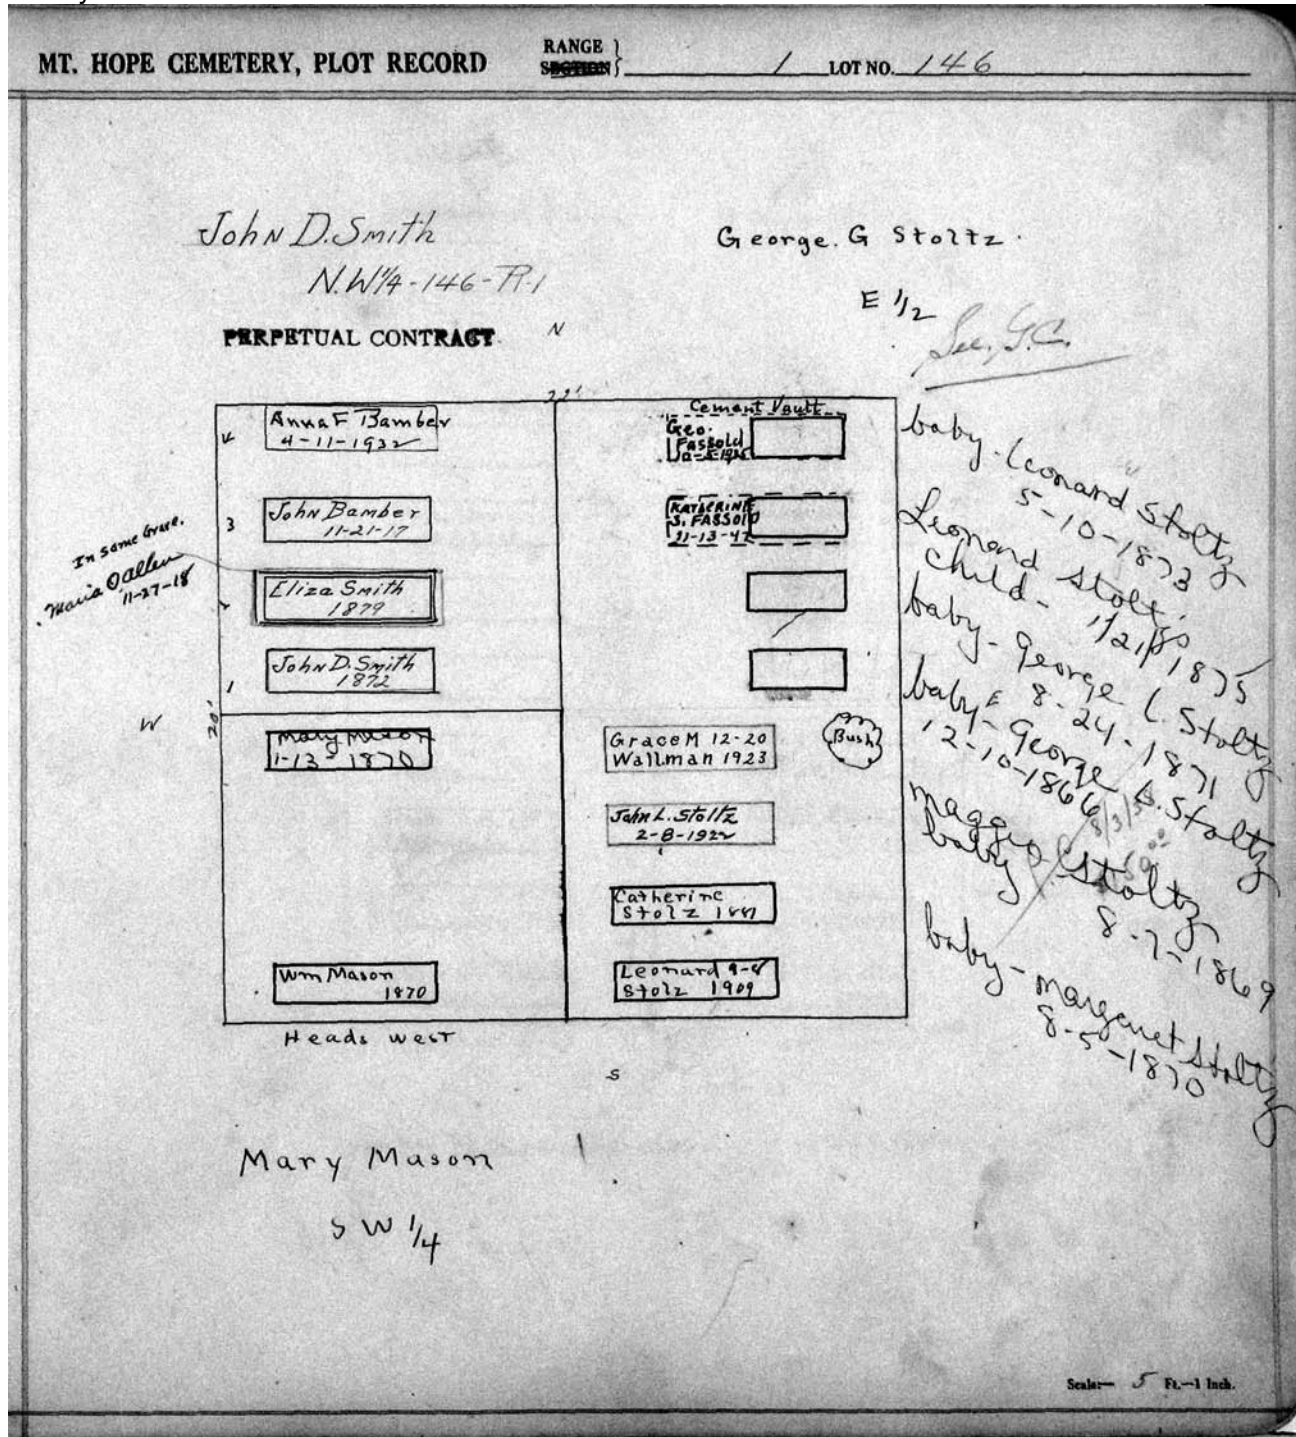 MT. HOPE CEMETERY, PLOT RECORD
RANGE
SECTION
1 LOT NO. 146
John D. Smith
N.W 1/4 - 146 - R.1
PERPETUAL CONTRACT
George. G Stoltz.
E 1/2
See, G.C.
N
22'
4
Anna F Bamber
4-11-1932
3
John Bamber
11-21-17
In same Grave.
Maria O Allen
11-27-18
2
Eliza Smith
1879
1
John D. Smith
1872
W
20'
Mary Mason
1-13-1870
Wm Mason
1870
Cement Vault
Geo.
Fassold
KATHERINE
S. FASSOLD
11-13-47
Grace M 12-20
Wallman 1923
Bush
John L. Stoltz
2-8-1922
Catherine
Stolz 1881
Leonard 9-8
Stolz 1909
baby - Leonard Stoltz
5-10-1873
Leonard Stoltz
Child - 1/21/1875
baby - George L. Stoltz
8-24-1871
baby - George L. Stoltz
12-10-1866
8/3/38
maggie Stoltz
baby 8-7-1869
baby - margaret Stoltz
8-5-1870
Heads west
S
Mary Mason
SW 1/4
Scale:— 5 Ft.—1 Inch.